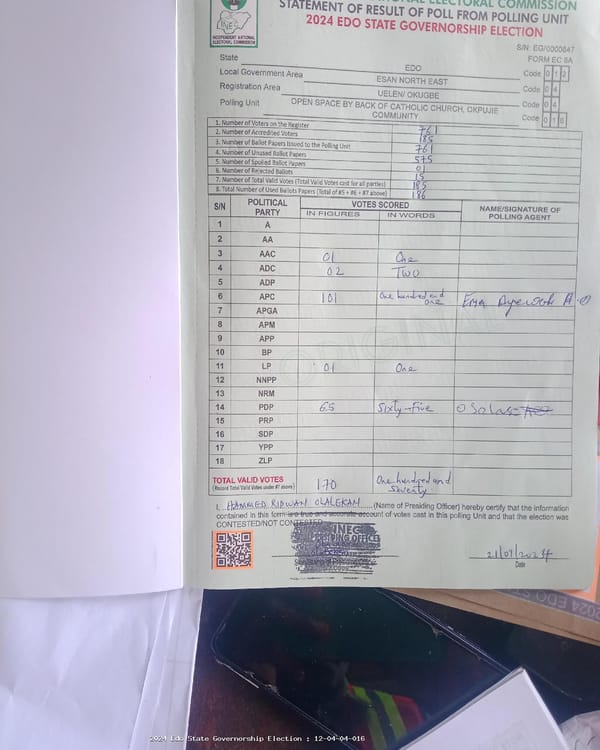 INEC
INDEPENDENT NATIONAL
ELECTORAL COMMISSION
NATIONAL ELECTORAL COMMISSION
STATEMENT OF RESULT OF POLL FROM POLLING UNIT
2024 EDO STATE GOVERNORSHIP ELECTION
S/N: EG/0000847
FORM EC 8A
State EDO Code 0 1 2
Local Government Area ESAN NORTH EAST Code 0 4
Registration Area UELEN/ OKUGBE Code 0 4
Polling Unit OPEN SPACE BY BACK OF CATHOLIC CHURCH, OKPUJIE COMMUNITY Code 0 1 6
1. Number of Voters on the Register 761
2. Number of Accredited Voters 185
3. Number of Ballot Papers Issued to the Polling Unit 761
4. Number of Unused Ballot Papers 575
5. Number of Spoiled Ballot Papers 01
6. Number of Rejected Ballots 15
7. Number of Total Valid Votes (Total Valid Votes cast for all parties) 185
8. Total Number of Used Ballots Papers (Total of #5 + #6 + #7 above) 186
S/N POLITICAL PARTY VOTES SCORED NAME/SIGNATURE OF POLLING AGENT
IN FIGURES IN WORDS
1 A
2 AA
3 AAC 01 One
4 ADC 02 Two
5 ADP
6 APC 101 One hundred and one
7 APGA
8 APM
9 APP
10 BP
11 LP 01 One
12 NNPP
13 NRM
14 PDP 65 Sixty-Five
15 PRP
16 SDP
17 YPP
18 ZLP
ORIGINAL
TOTAL VALID VOTES 170 One hundred and Seventy
(Record Total Valid Votes under #7 above)
I, HAMMED RIDWAN OLALEKAN (Name of Presiding Officer) hereby certify that the information
contained in this form are true and accurate account of votes cast in this polling Unit and that the election was
CONTESTED/NOT CONTESTED
INEC
21/09/2024
Date
2024 EDO ST
2024 Edo State Governorship Election : 12-04-04-016